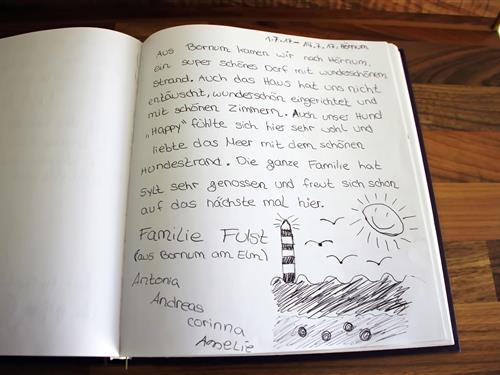 1.7.17 - 14.7.17, Hörnum
Aus Bornum kamen wir nach Hörnum,
ein super schönes Dorf mit wunderschönem
Strand. Auch das Haus hat uns nicht
entäuscht, wunderschön eingerichtet und
mit schönen Zimmern. Auch unser Hund
„Happy" fühlte sich hier sehr wohl und
liebte das Meer mit dem schönen
Hundestrand. Die ganze Familie hat
Sylt sehr genossen und freut sich schon
auf das nächste mal hier.
Familie Fulst
(aus Bornum am Elm)
Antonia
Andreas
Corinna
Amelie